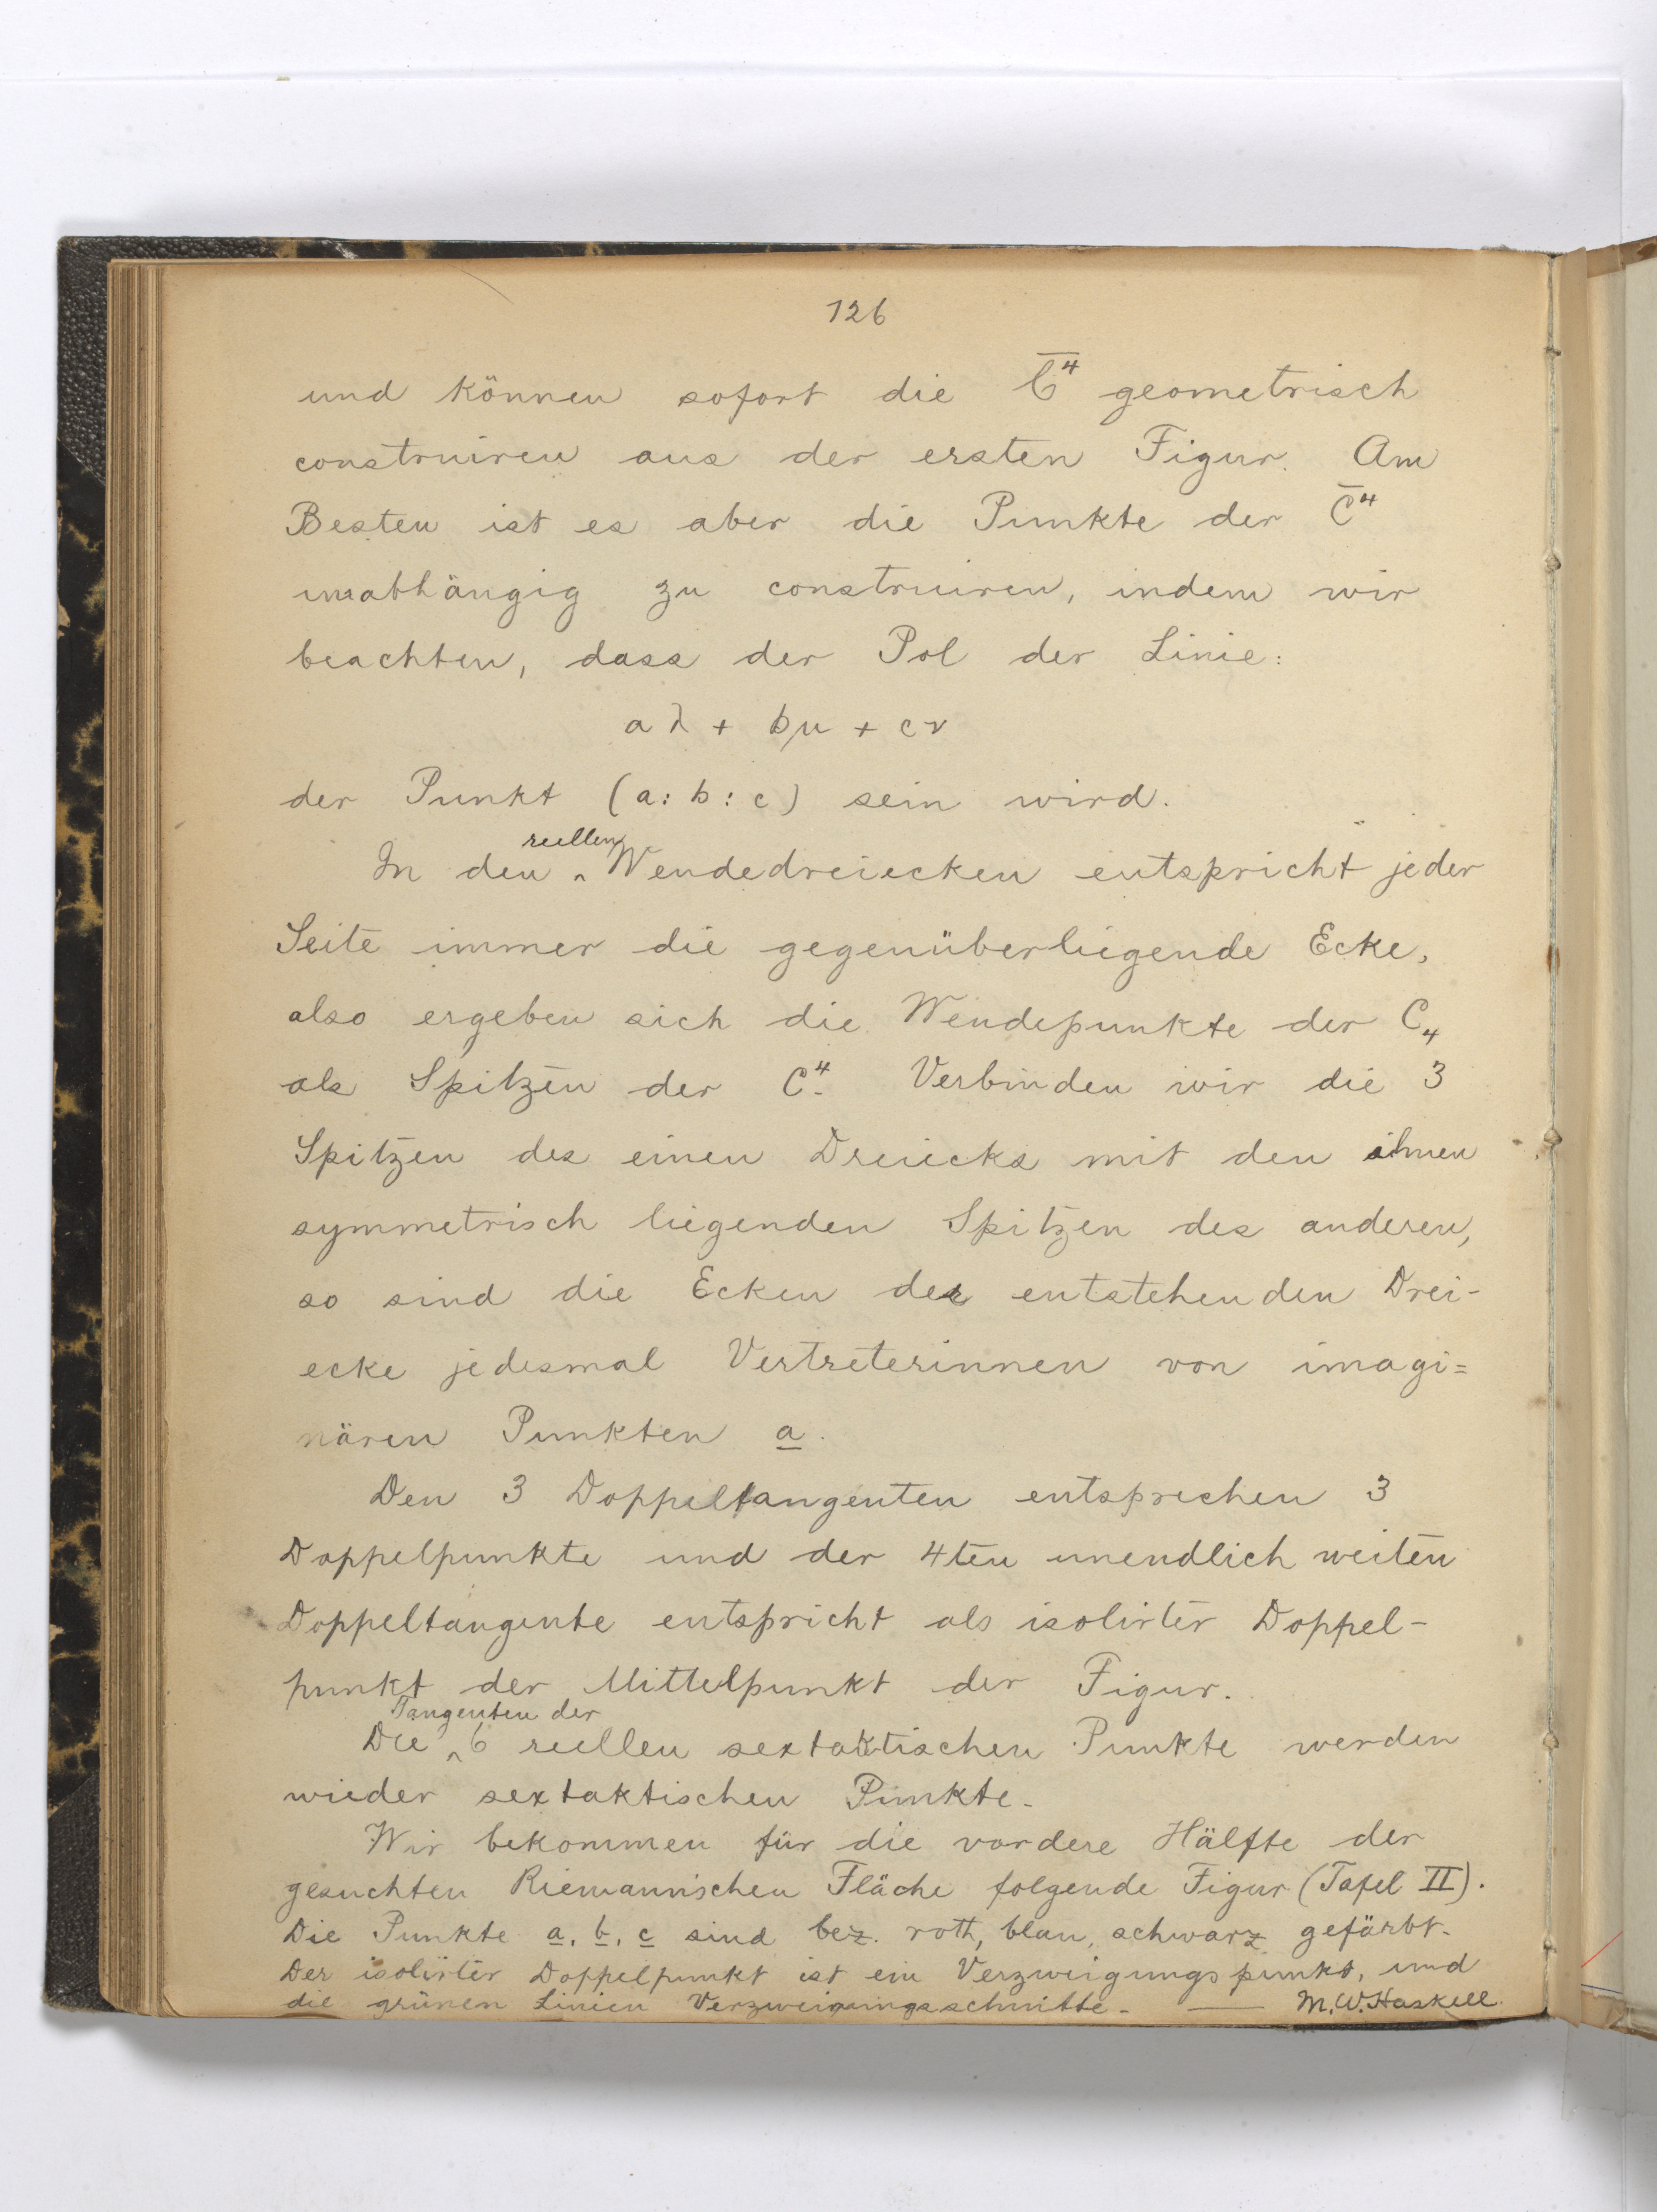 126
und können sofort die C̅⁴ geometrisch
construiren aus der ersten Figur. Am
Besten ist es aber die Punkte der C̅⁴
unabhängig zu construiren, indem wir
beachten, dass der Pol der Linie:
aλ + bμ + cν
der Punkt (a : b : c) sein wird.
reellen
In den ^ Wendedreiecken entspricht jeder
Seite immer die gegenüberliegende Ecke,
also ergeben sich die Wendepunkte der C₄
als Spitzen der C⁴. Verbinden wir die 3
Spitzen des einen Dreiecks mit den ihnen
symmetrisch liegenden Spitzen des anderen,
so sind die Ecken der entstehenden Drei-
ecke jedesmal Vertreterinnen von imagi=
nären Punkten a.
Den 3 Doppeltangenten entsprechen 3
Doppelpunkte und der 4ten unendlich weiten
Doppeltangente entspricht als isolirter Doppel-
punkt der Mittelpunkt der Figur.
Tangenten der
Die ^ 6 reellen sextaktischen Punkte werden
wieder sextaktischen Punkte.
Wir bekommen für die vordere Hälfte der
gesuchten Riemannischen Fläche folgende Figur (Tafel II).
Die Punkte a, b, c sind bez. roth, blau, schwarz gefärbt.
Der isolirter Doppelpunkt ist ein Verzweigungspunkt, und
die grünen Linien Verzweigungsschnitte. — M.W. Haskell.